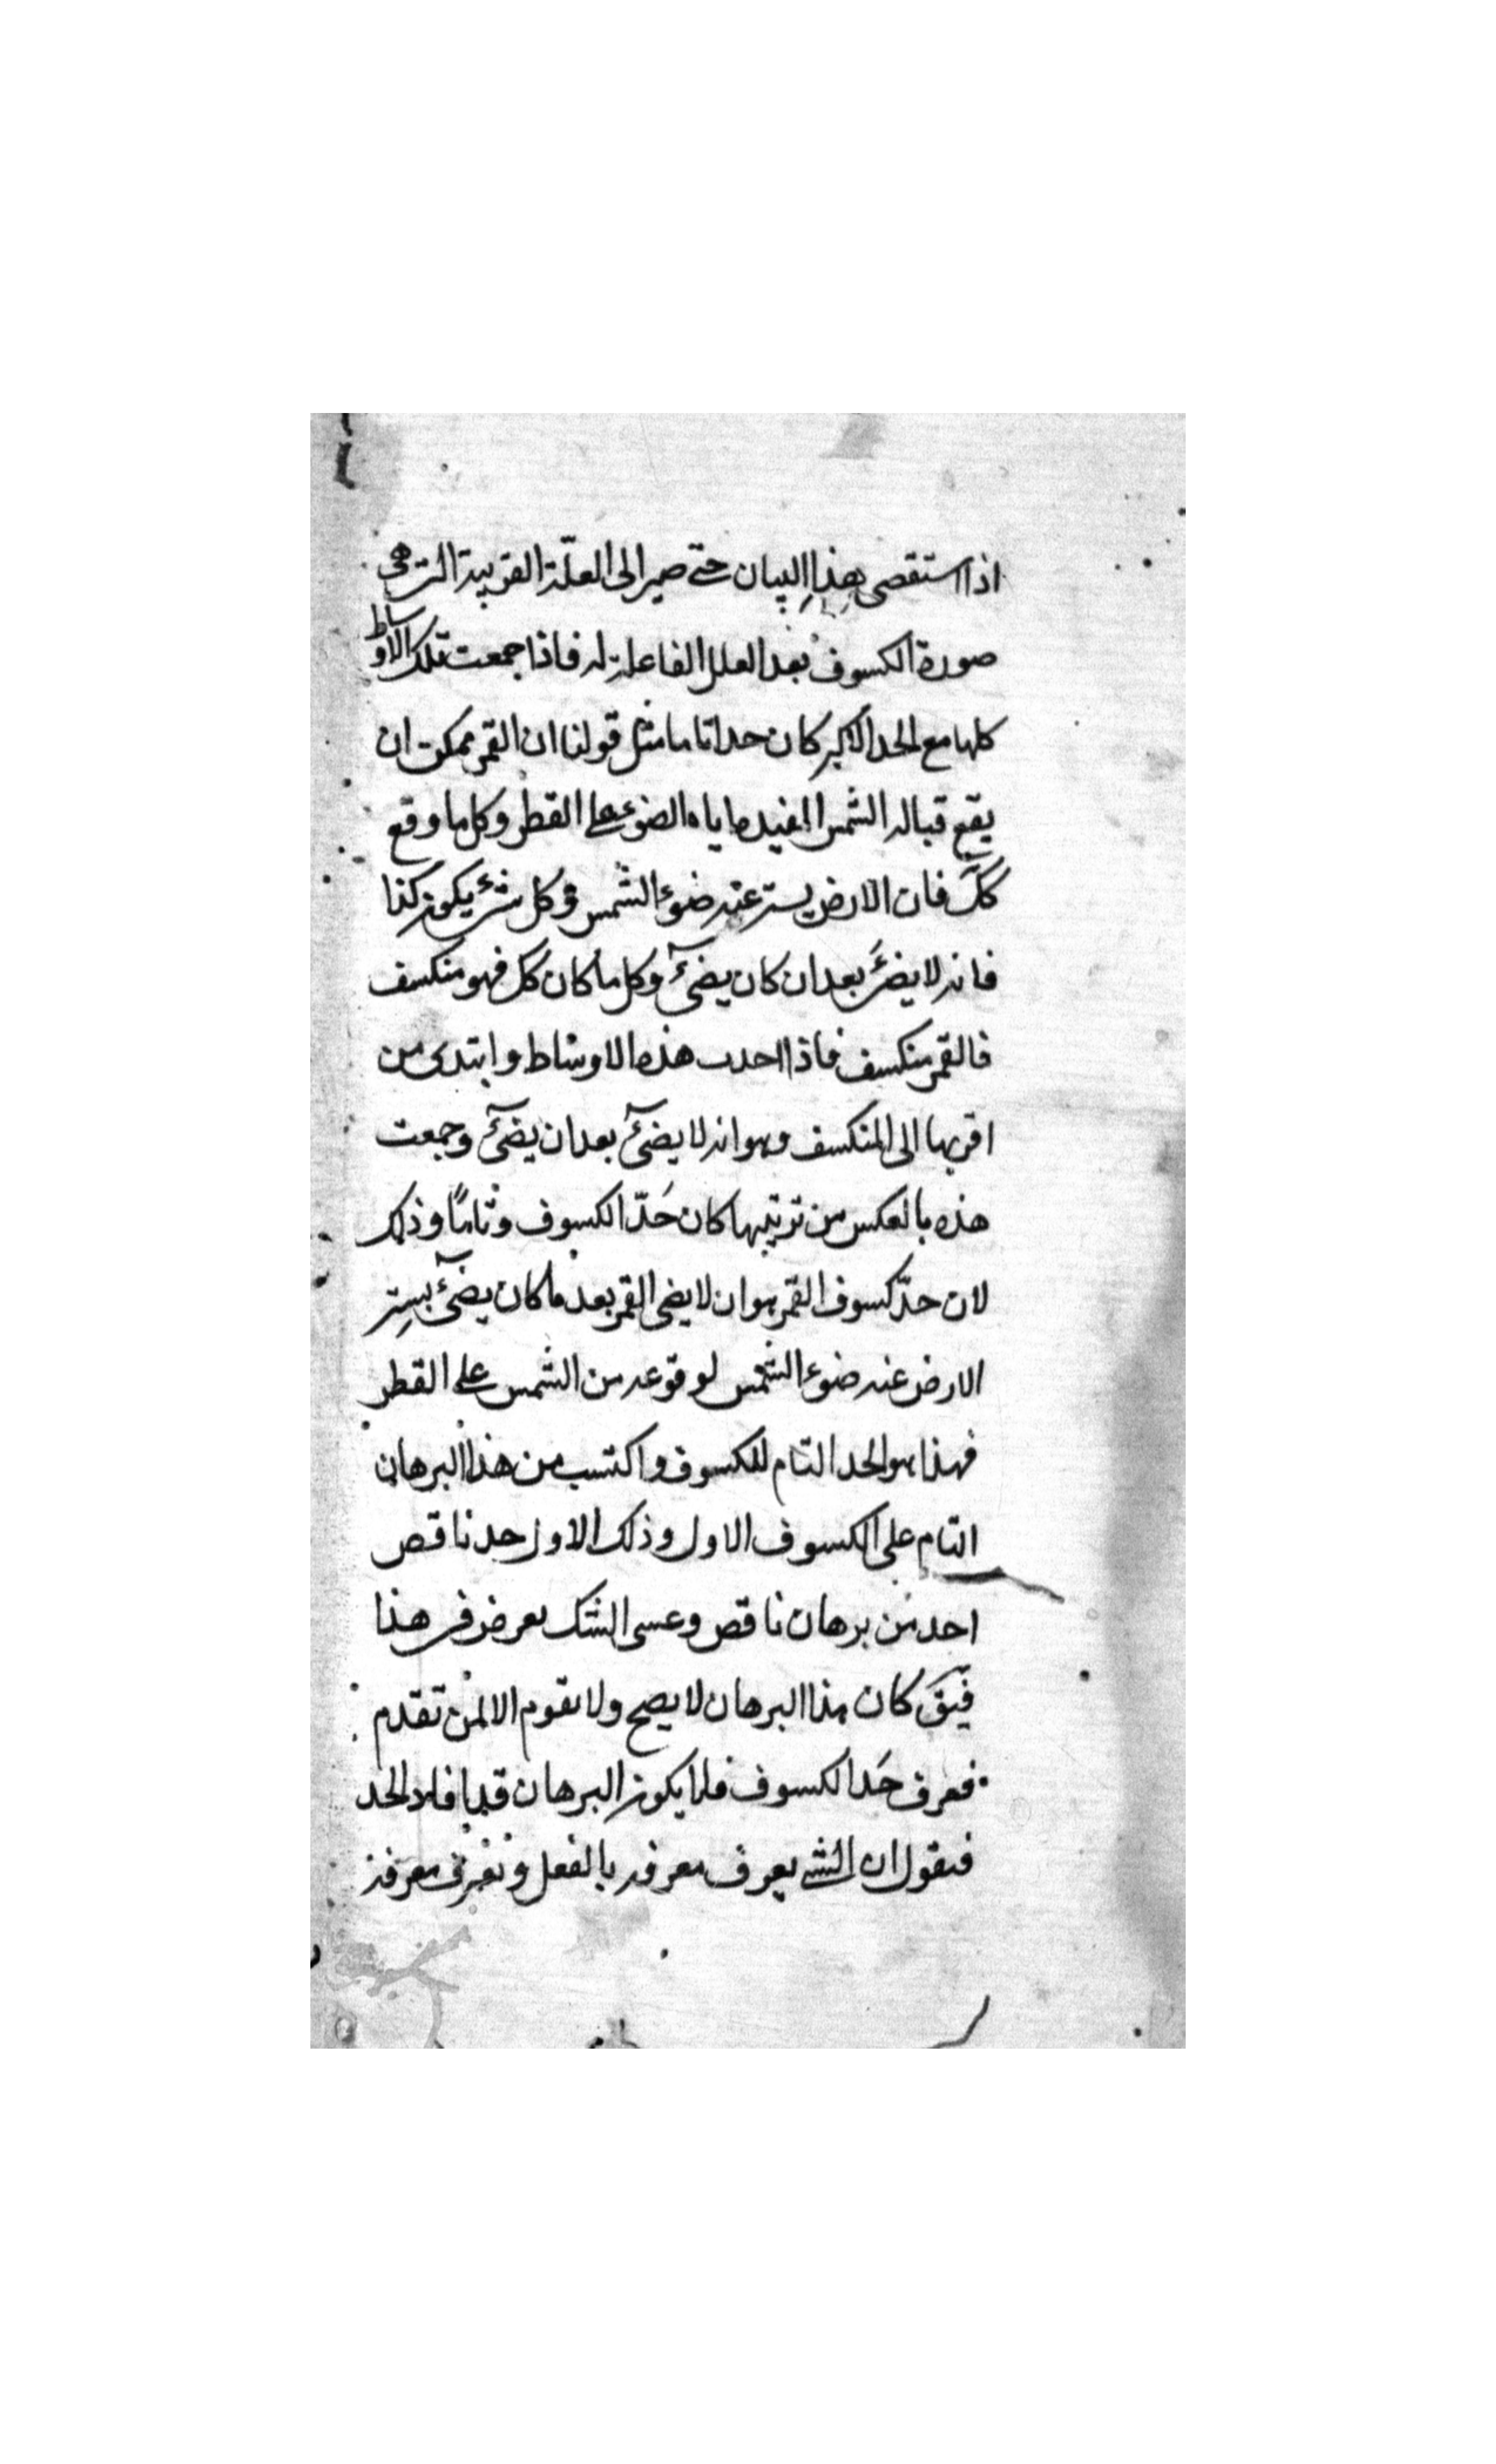 اذا استقصى هذا البيان حتى صير الى العلّة القريبة التى هى
صورة الكسوف بعد العلل الفاعلة له فاذا جمعت تلك الاوساط
كلها مع الحد الاكبر كان حدا تاما مثل قولنا ان القمر ممكن ان
يقع قبالة الشمس المفيده اياه الضوء على القطر وكل ما وقع
كك فان الارض يستر عنه ضوء الشمس وكل شئ يكون كذا
فانه لا يضئ بعد ان كان يضئ وكل ما كان كك فهو منكسف
فالقمر منكسف فاذا احدت هذه الاوساط وابتدى من
اقربها الى المنكسف وهو انه لا يضئ بعد ان يضئ وجمعت
هذه بالعكس من ترتيبها كان حَدّ الكسوف وتامًا وذلك
لان حدّ كسوف القمر هو ان لا يضى القمر بعد ما كان يضئ بسِتر
الارض عنه ضوء الشمس لوقوعه من الشمس على القطر
فهذا هو الحد التام للكسوف واكتسب من هذا البرهان
التام على الكسوف الاول وذلك الاول حد ناقص
احد من برهان ناقص وعسى الشك يعرض فى هذا
فيقَ كان هذا البرهان لا يصح ولا يقوم الا لمن تقدم
فعرف حَد الكسوف فلما يكون البرهان قد افاد الحد
فنقول ان الشئ يعرف معرفة بالفعل ونعرف معرفة